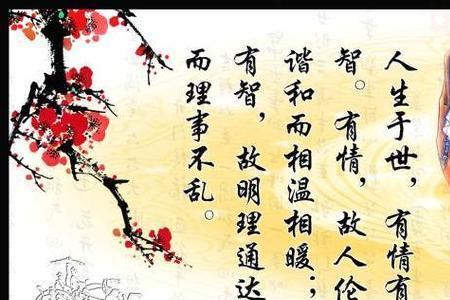 人生于世，有情有
智。有情，故人伦
谐和而相温相暖；
有智，故明理通达
而理事不乱。